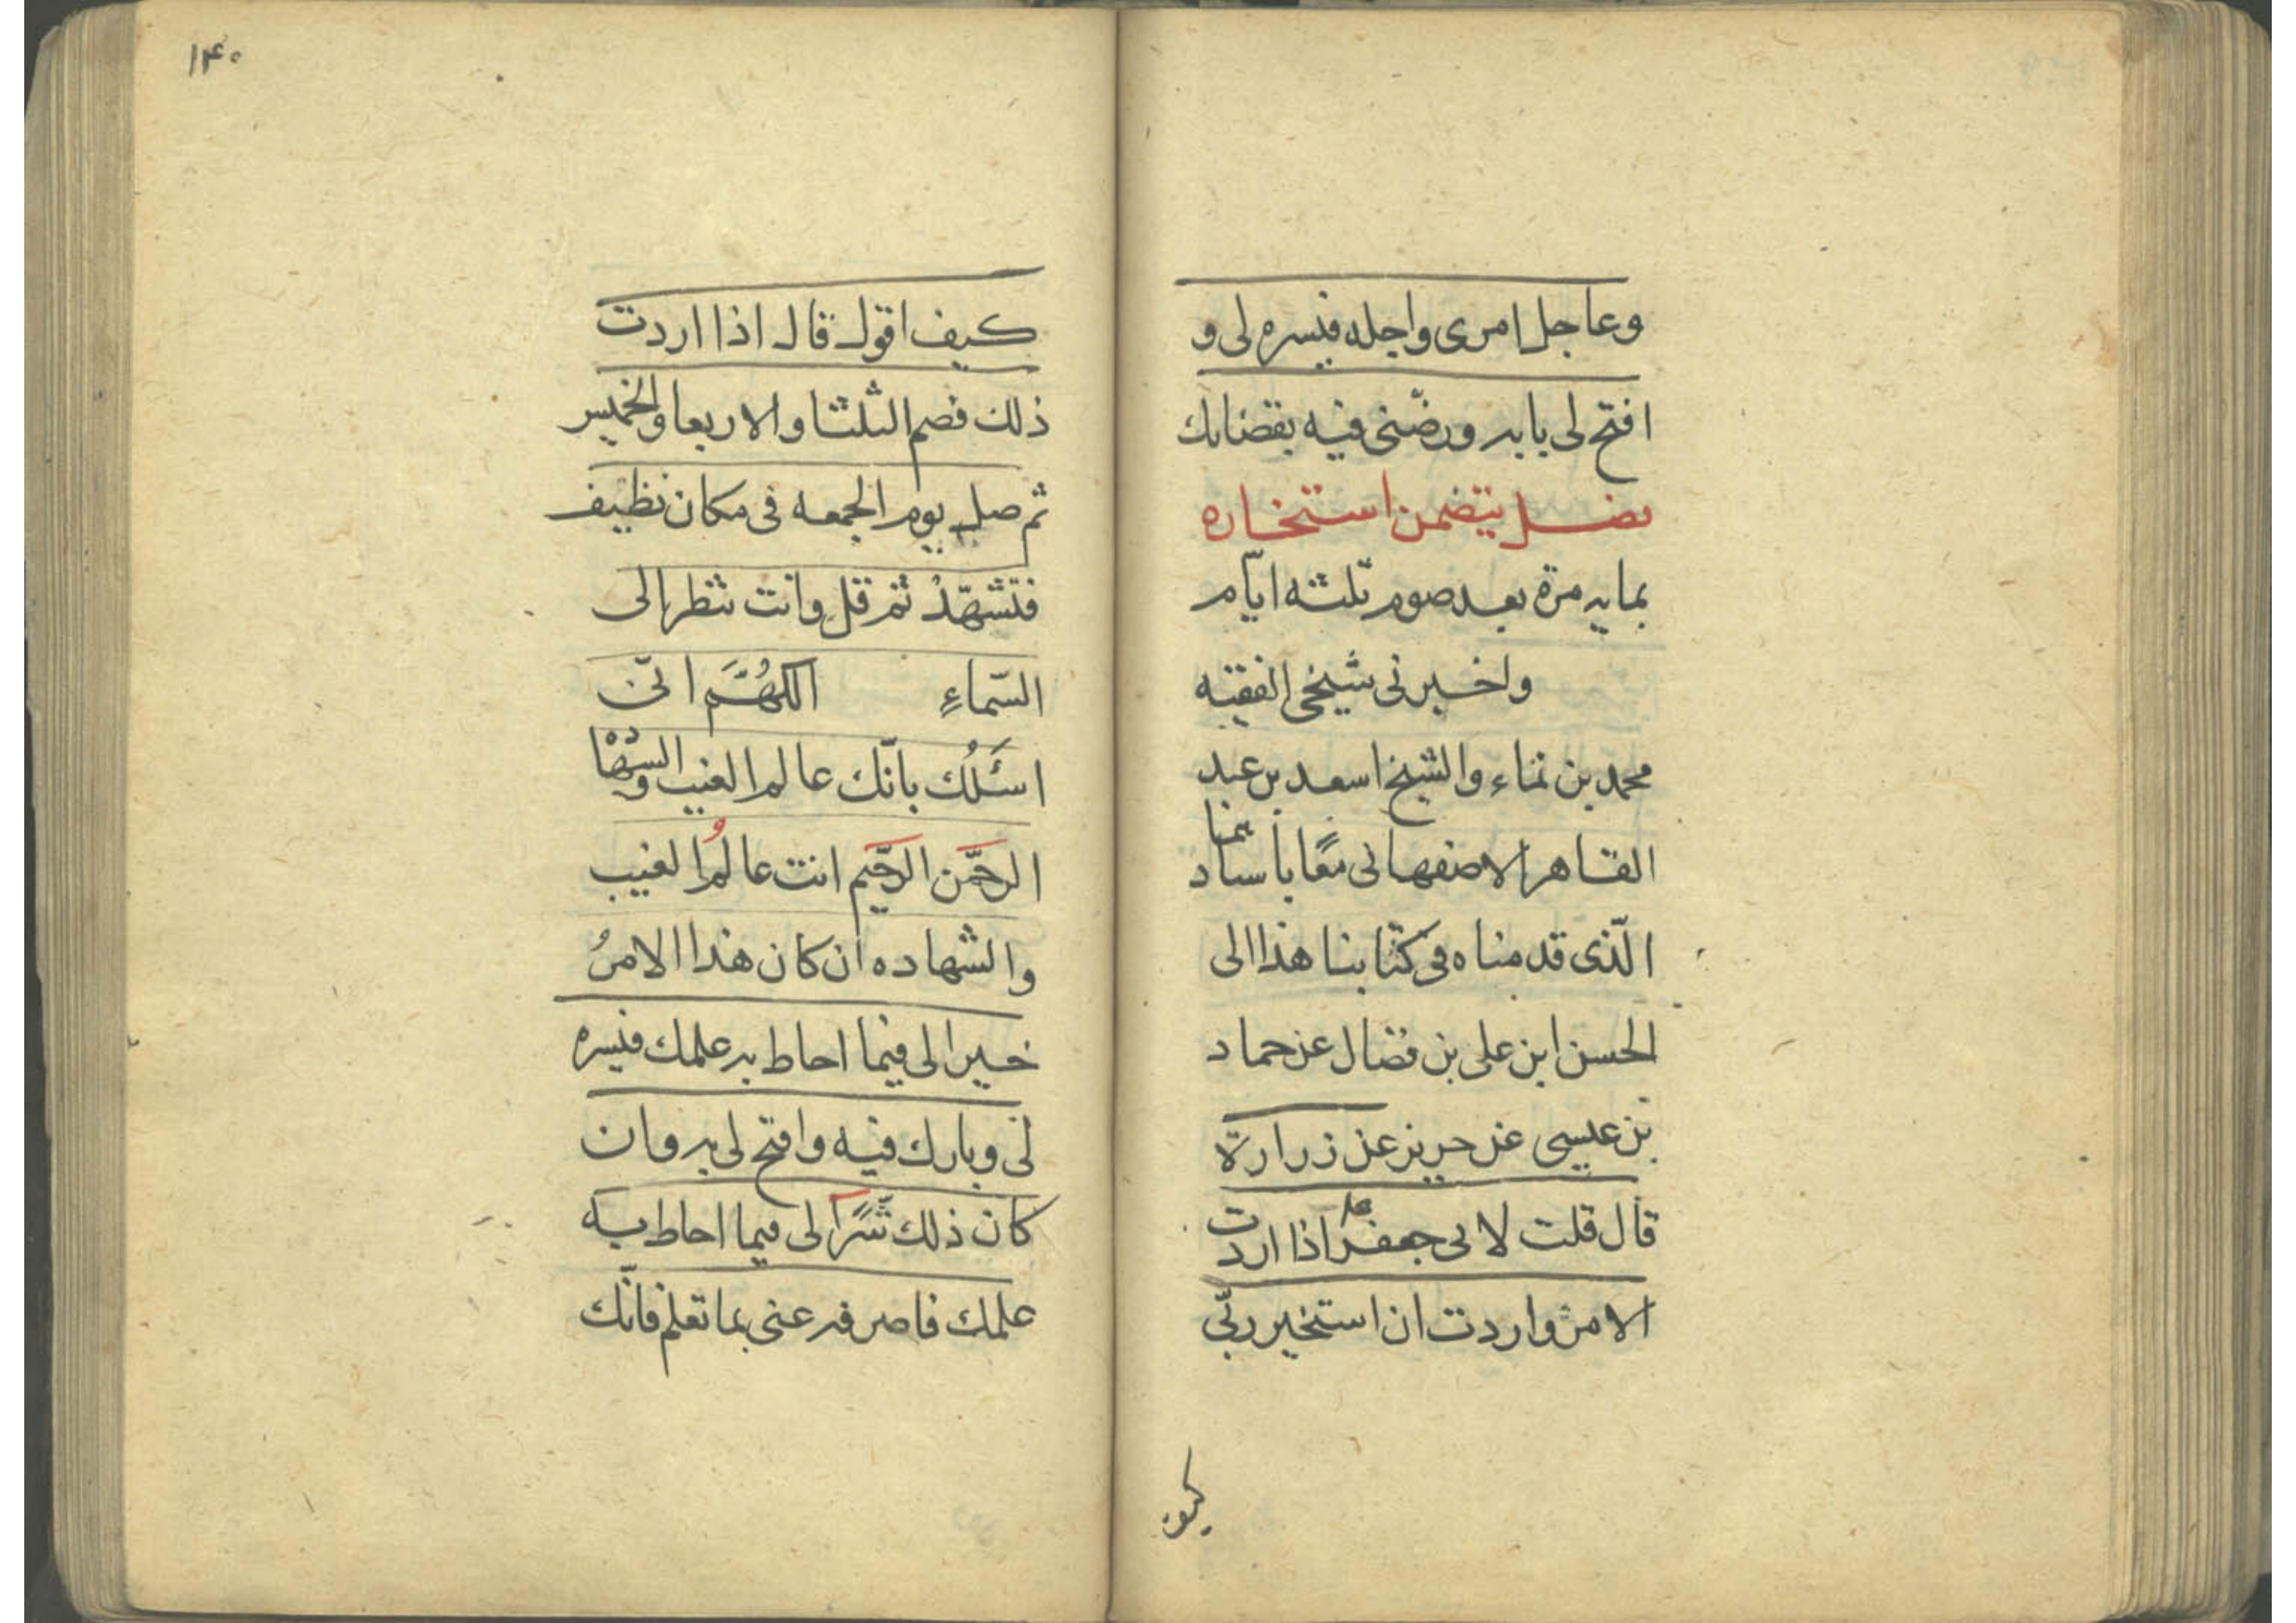 وعاجل امرى واجله فيسره لى و
افتح لى بابه ورضّنى فيه بقضائك
فصل يتضمن استخاره
بمايه مرة بعد صوم ثلثه ايّام
واخبرنى شيخى الفقيه
محمد بن نماء والشيخ اسعد بن عبد
القاهر الاصفهانى معًا باسنادهما
الّذى قدمناه فى كتابنا هذا الى
الحسن ابن على بن فضال عن حماد
بن عيسى عن حريز عن زرارة
قال قلت لابى جعفر ع اذا اردت
الامر واردت ان استخير ربّى
كيف
١۴٠
كيف اقول قال اذا اردت
ذلك فصم الثلثا والاربعا والخميس
ثم صل يوم الجمعه فى مكان نظيف
فتشهّد ثم قل وانت تنظر الى
السّماءِ اللهُمَّ انّى
اسَئَلُك بانّك عالم الغيب والشهادة
الرحمّن الرحّيم انت عالمُ الغيب
والشهاده ان كان هذا الامرُ
خيرا لى فيما احاط به علمك فيسره
لى وبارك فيه وافتح لى به وان
كان ذلك شَرًّا لى فيما احاط به
علمك فاصرفه عنى بما تعلم فانّك